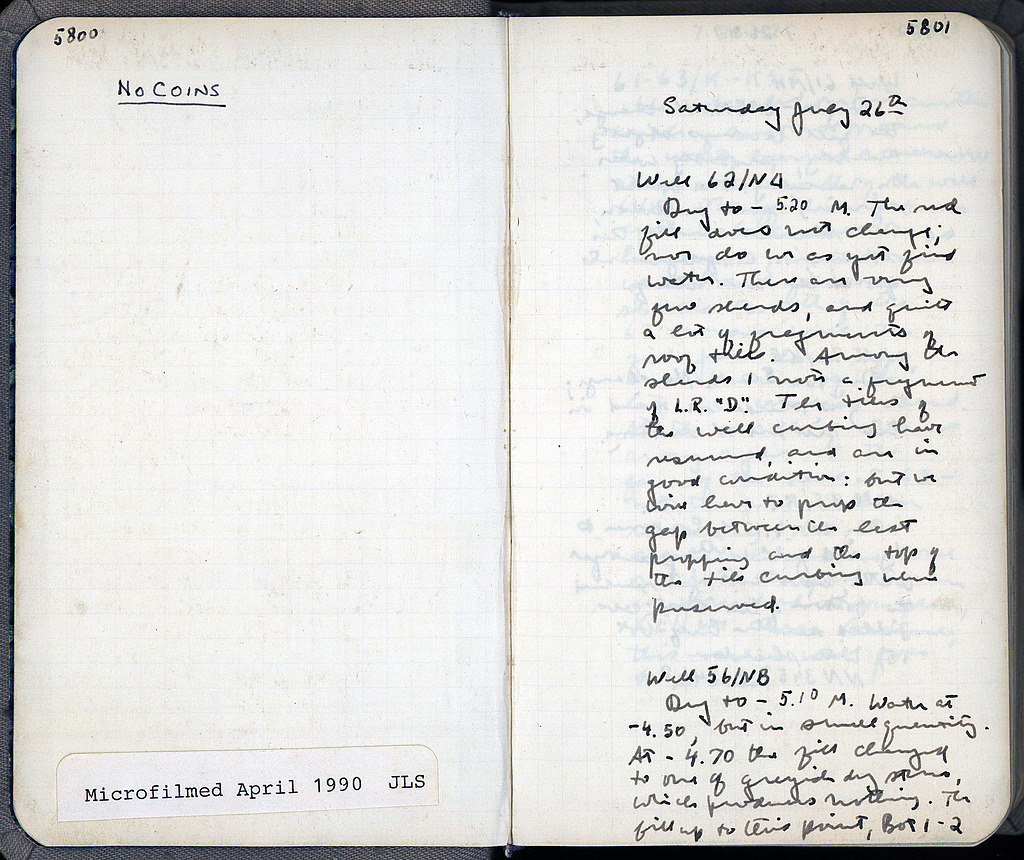 5800
NO COINS
Microfilmed April 1990 JLS
5801
Saturday July 26th
Well 62/NA
Dug to - 5.20 M. The red
fill does not change;
nor do we as yet find
water. There are very
few sherds, and quite
a lot of fragments of
roof tiles. Among the
sherds I note a fragment
of L.R. "D". The tiles of
the well curbing have
resumed, and are in
good condition: but we
will have to prop the
gap between the last
propping and the top of
the tile curbing now
preserved.
Well 56/NB
Dug to - 5.10 M. Water at
-4.50, but in small quantity.
At - 4.70 the fill changed
to one of greyish dry stones,
which produces nothing. The
fill up to this point, Box 1-2